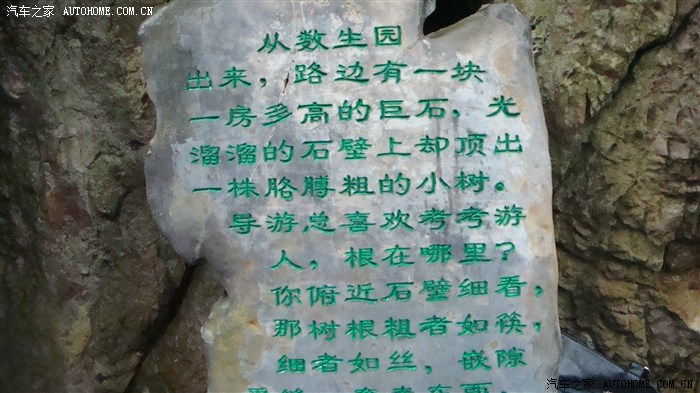 汽车之家 AUTOHOME.COM.CN
从数生园
出来，路边有一块
一房多高的巨石，光
溜溜的石壁上却顶出
一株胳膊粗的小树。
导游总喜欢考考游
人，根在哪里？
你俯近石壁细看，
那树根粗者如筷，
细者如丝，嵌隙
汽车之家 AUTOHOME.COM.CN